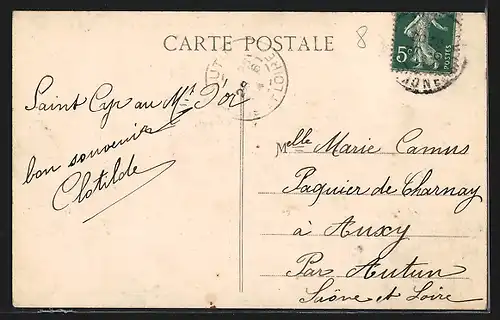 CARTE POSTALE
8
5c
POSTES
RHONE
Saint Cyr au Mt D'or
bon souvenir
Clotilde
Melle Marie Camus
Paquier de Charnay
à Auxy
Par Autun
Saône et Loire